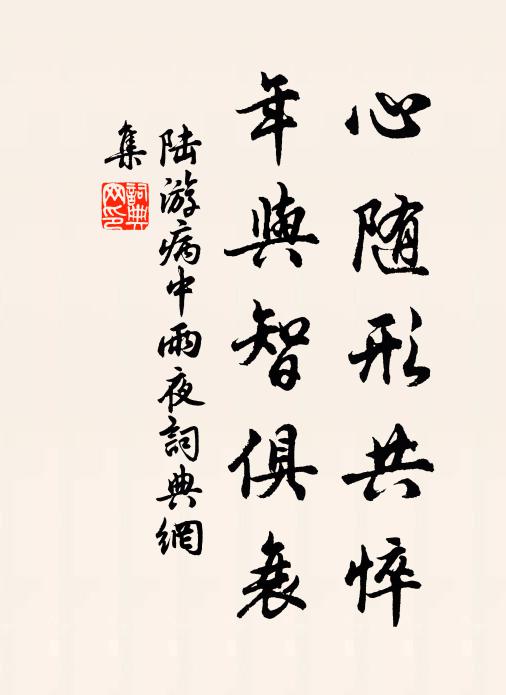 心随形共悴
年與智俱衰
陆游病中雨夜詞典網
集
詞典網印